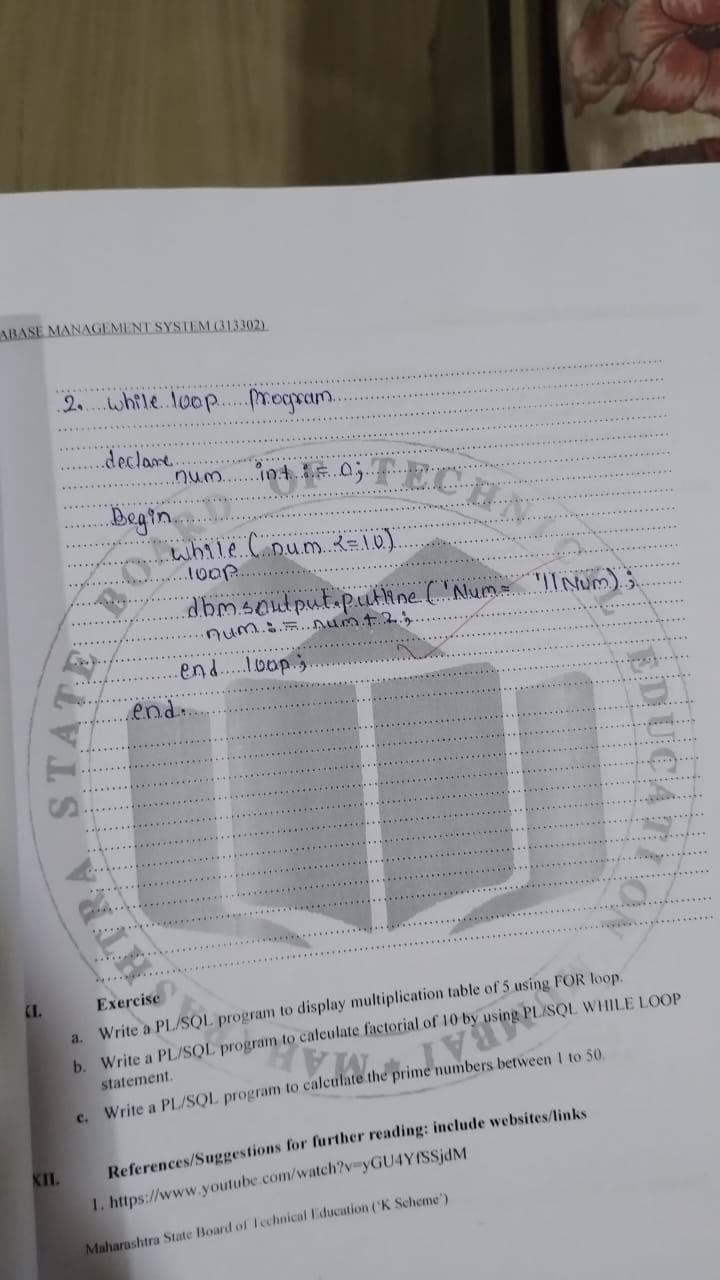 ABASE MANAGEMENT SYSTEM (313302)
2. while loop program
declare
num int := 0;
Begin
while (num <=10)
loop
dbms output.putline ('Num= '||Num);
num := num + 2;
end loop;
end.
MAHARASHTRA STATE BOARD OF TECHNICAL EDUCATION MUMBAI
XI. Exercise
a. Write a PL/SQL program to display multiplication table of 5 using FOR loop.
b. Write a PL/SQL program to calculate factorial of 10 by using PL/SQL WHILE LOOP
statement.
c. Write a PL/SQL program to calculate the prime numbers between 1 to 50.
XII. References/Suggestions for further reading: include websites/links
1. https://www.youtube.com/watch?v=yGU4YfSSjdM
Maharashtra State Board of Technical Education ('K Scheme')